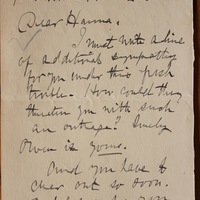 Dear Hanna,
I must write a line
of additional sympathy
for you under this fresh
trouble. How could they
threaten you with such
an outrage? Surely
Owen is yours.
And you have to
clear out so soon.